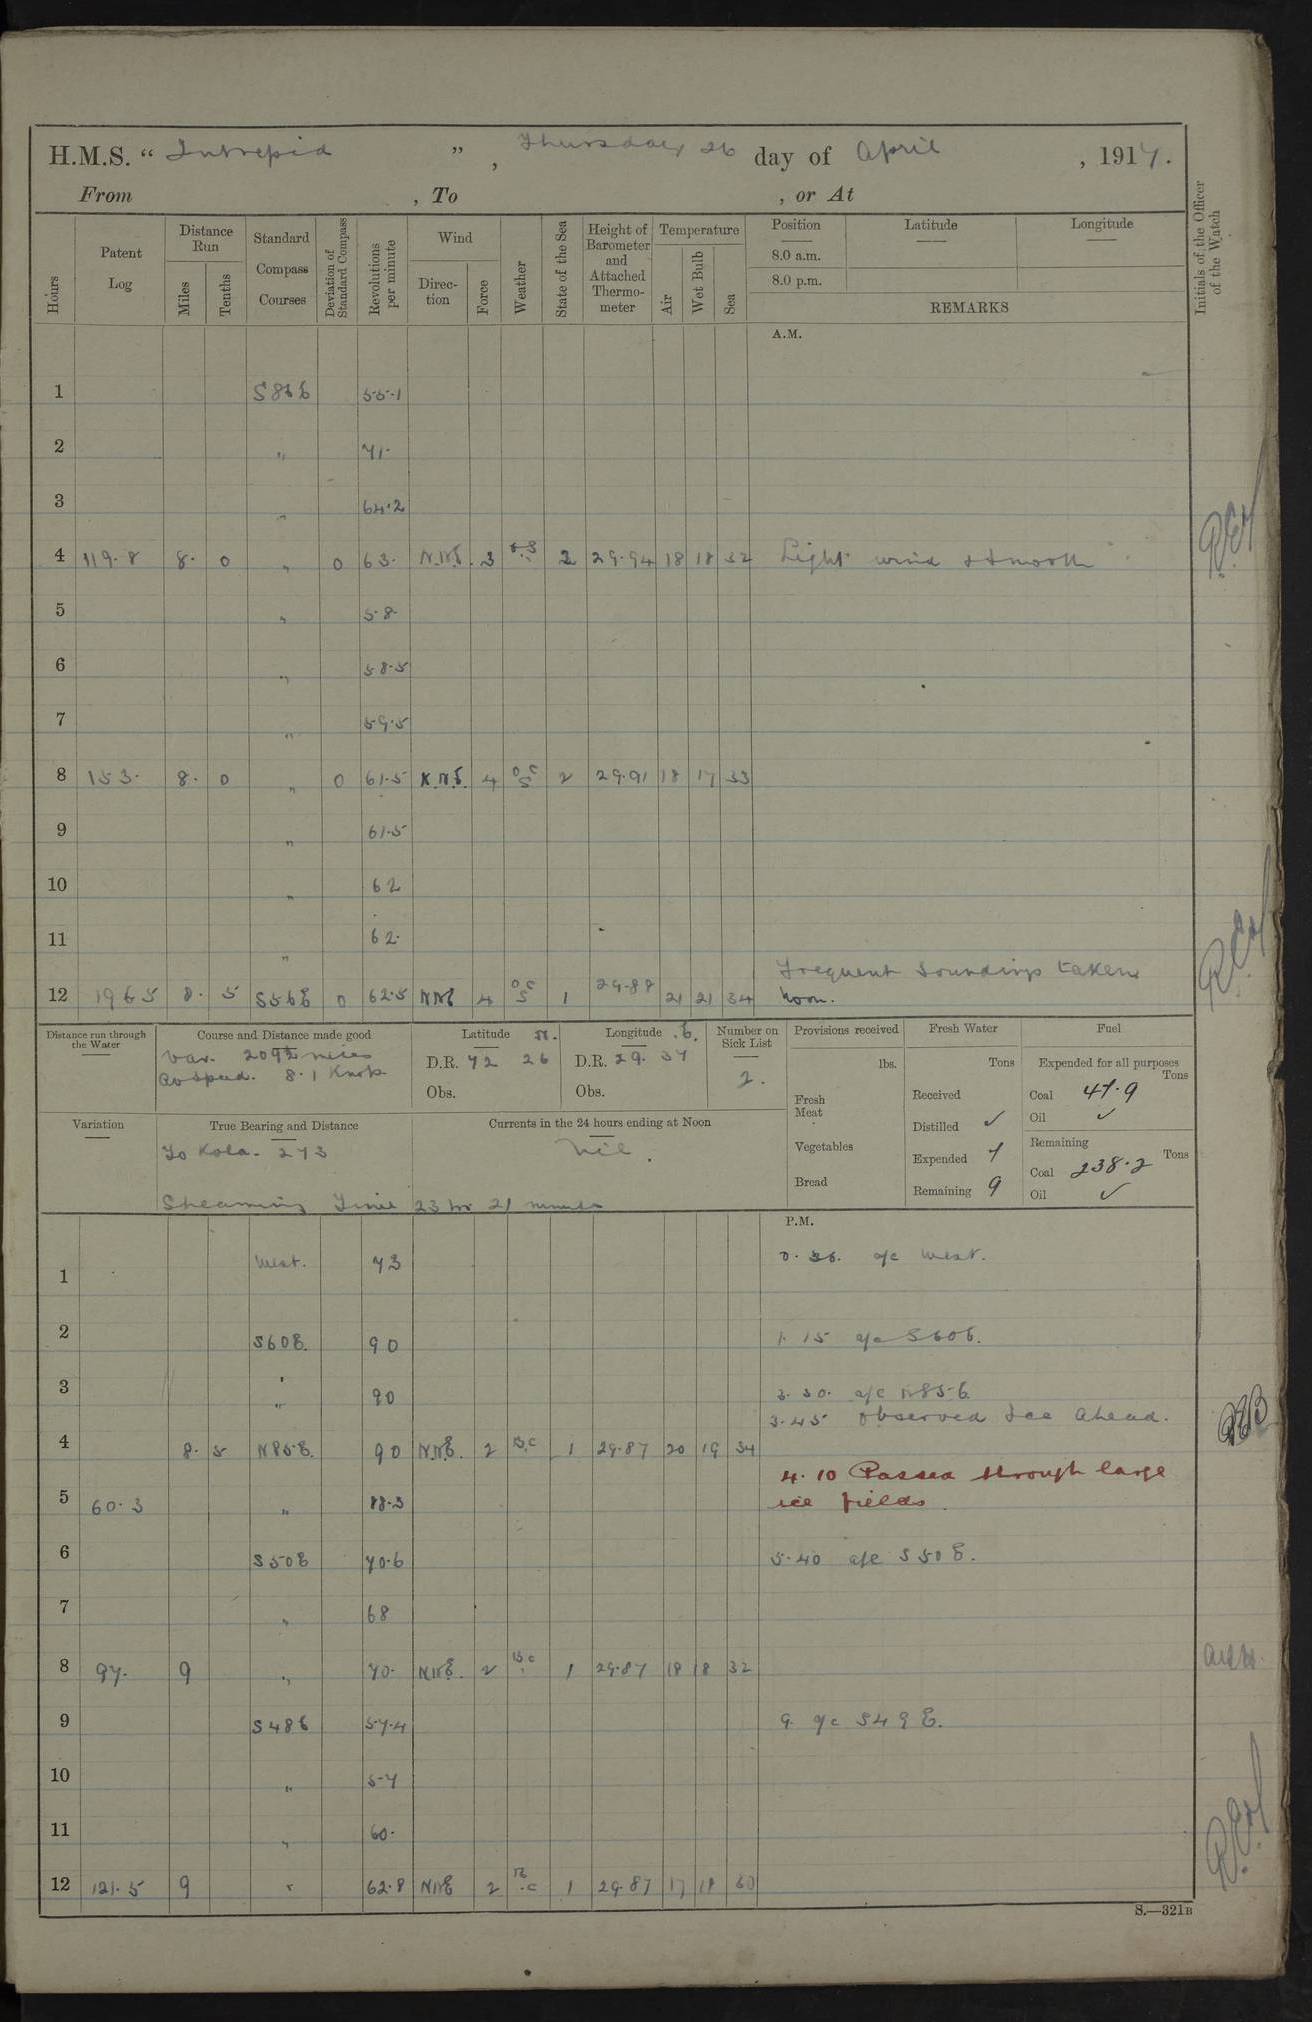 H.M.S. “ Intrepid ” , Thursday 26 day of April , 1917.
From , To , or At
Hours
Patent Log
Distance Run
Miles
Tenths
Standard Compass Courses
Deviation of Standard Compass
Revolutions per minute
Wind
Direction
Force
Weather
State of the Sea
Height of Barometer and Attached Thermometer
Temperature
Air
Wet Bulb
Sea
Position
8.0 a.m.
8.0 p.m.
Latitude
Longitude
REMARKS
Initials of the Officer of the Watch
A.M.
1 55.1
2 „ 71.
3 „ 64.2
4 119.8 8. 0 „ 0 63. N.N.E. 3 2 29.94 18 18 32 Light wind & smooth
5 „ 58
6 „ 58.5
7 „ 59.5
8 153. 8. 0 „ 0 61.5 N.N.E. 4 O C S 2 29.91 18 17 33
9 „ 61.5
10 „ 62
11 „ 62.
Frequent soundings taken
12 196 5 8. 5 S56E 0 62.5 NNE 4 O C S 1 29.88 21 21 34 Noon.
Distance run through the Water
Course and Distance made good
Var. miles
Av speed. 8.1 Knots
Latitude N.
D.R. 72 26
Obs.
Longitude E.
D.R. 29. 37
Obs.
Number on Sick List
2.
Provisions received
lbs.
Fresh Meat
Vegetables
Bread
Fresh Water
Tons
Received
Distilled ✓
Expended 7
Remaining 9
Fuel
Expended for all purposes
Tons
Coal 47.9
Oil ✓
Remaining
Tons
Coal 238.2
Oil ✓
Variation
True Bearing and Distance
To Kola. 273
Currents in the 24 hours ending at Noon
Nil.
Steaming Time 23 hr 21 minutes
P.M.
1 West. 73 0. 36. a/c West.
2 S60E. 90 1. 15 a/c S60E.
3 „ 90 3. 30. a/c N85E
3.45 Observed Ice Ahead.
4 8. 5 N85E. 90 N.N.E. 2 B.C 1 29.87 20 19 34
4.10 Passed through large
5 60.3 „ 88.3 ice fields.
6 S50E 70.6 5.40 a/c S50E.
7 „ 68
8 97. 9 „ 70. NNE. 2 B.C 1 29.87 18 18 32
9 S48E 57.4 9. a/c S49E.
10 „ 57
11 „ 60.
12 121.5 9 „ 62.8 NNE 2 B.C 1 29.87 17 18 30
S.—321B